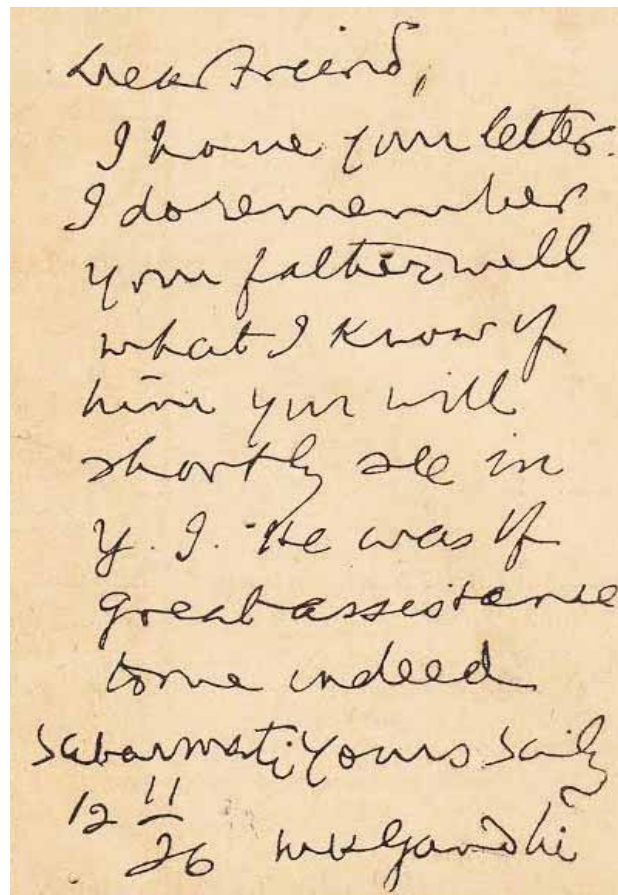 Dear friend,
I have your letter.
I do remember
your father well
what I know of
him you will
shortly see in
Y. I. He was of
great assistance
to me indeed
Sabarmati Yours Scily
12 11/26 MKGandhi